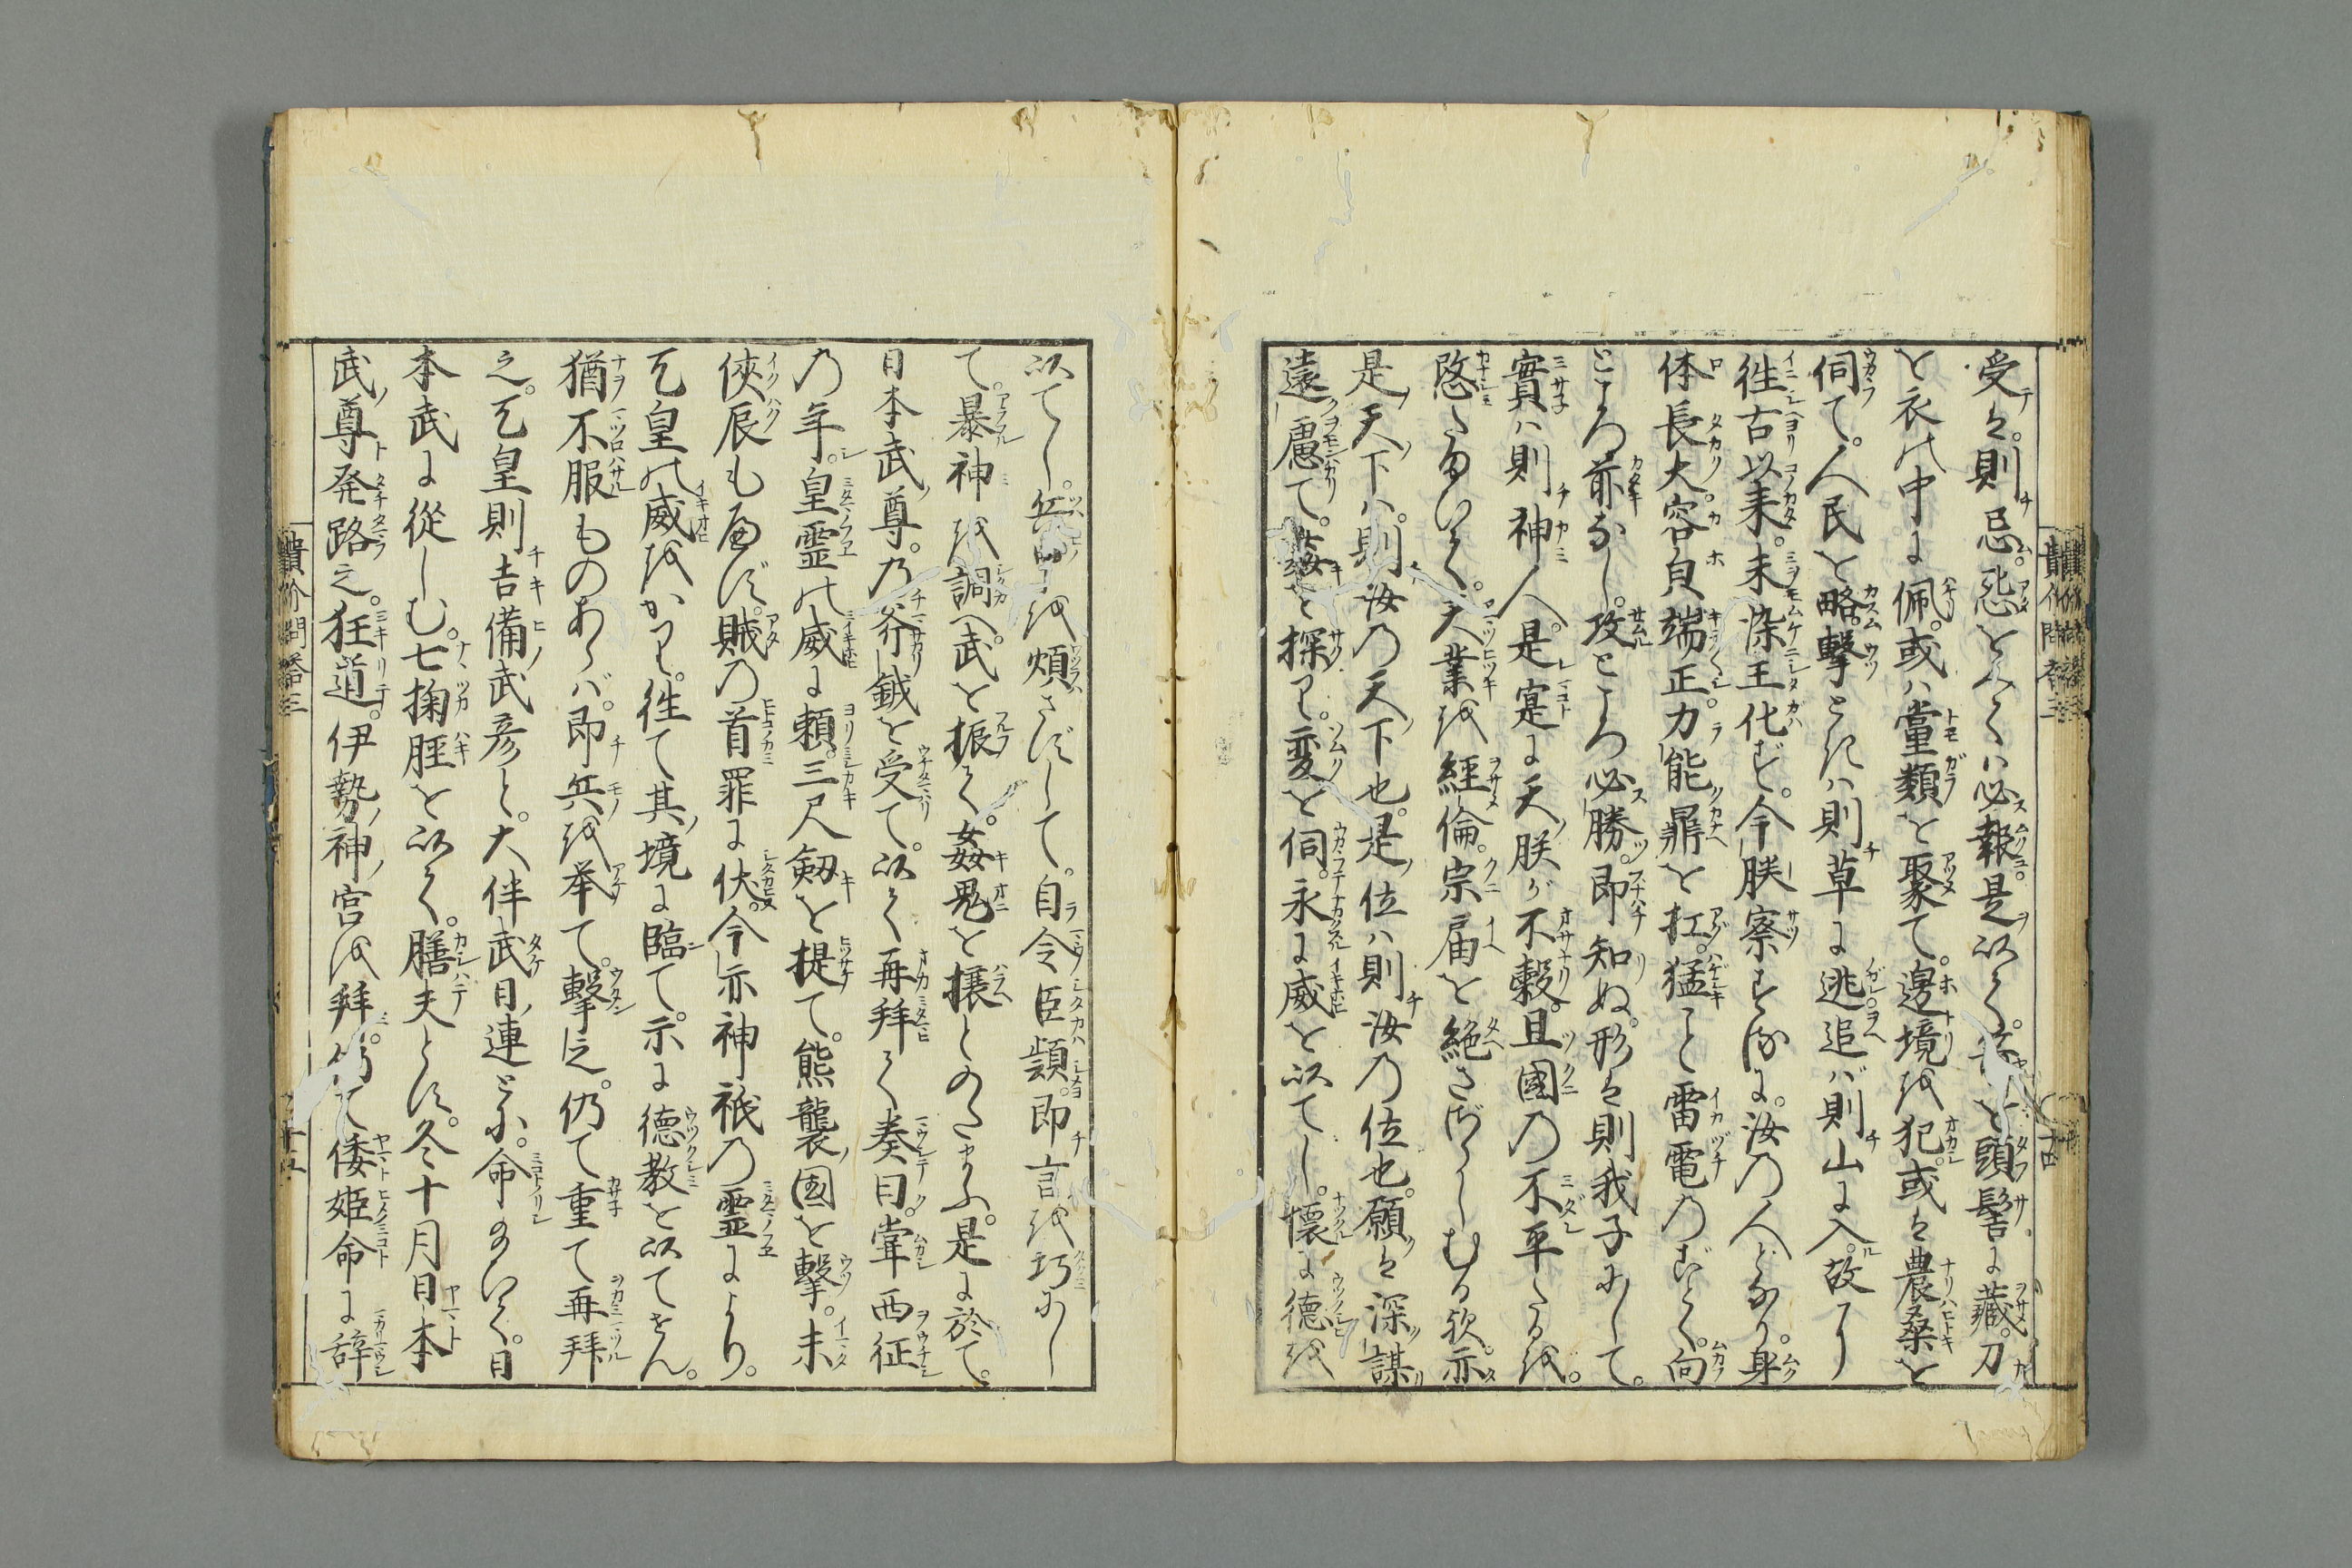 受てハ則忌。怨をみてハ必報是以て。箭を頭髻に藏。刀
を衣の中に佩。或ハ黨類を聚て。邊境を犯。或ハ農桑を
伺て。人民を略撃ときハ則草に逃追バ則山に入故に
往古以来。未染王化ず。今朕察するに。汝の人となり。身
体長大容皃端正。力能鼎を扛。猛こと雷電のごとく。向
ところ前なし。攻ところ必勝。即知ぬ。形ハ則我子にして。
實ハ則神人。是寔に天朕が不叡。且國の不平たるを。
愍たまいて。天業を經倫。宗廟を絶さざらしむる欤。亦
是天下ハ則汝の天下也。是位ハ則汝の位也。願ハ深謀
遠慮て。姦を探り。変を伺。永に威を以てし。懐に德を
以てし。兵甲を煩さずして。自令臣順。即言を巧にし
て。暴神を調へ武を振て。姦鬼を攘とのたまふ。是に於て。
日本武尊。乃斧鉞を受て。以て再拜て奏曰。嘗西征
の年。皇霊の威に頼。三尺剱を提て。熊襲国を撃。未
浹辰も經ず。賊の首罪に伏。今亦神祇の霊により。
天皇の威をかり。往て其境に臨て。示に德教を以てせん。
猶不服ものあらバ。即兵を挙て。撃之。仍て重て再拜
之。天皇則吉備武彦と。大伴武日連とに。命のりて。日
本武に從しむ。七掬脛を以て。膳夫とす。冬十月日本
武尊発路之。狂道。伊勢神宮を拜。仍て倭姫命に辞